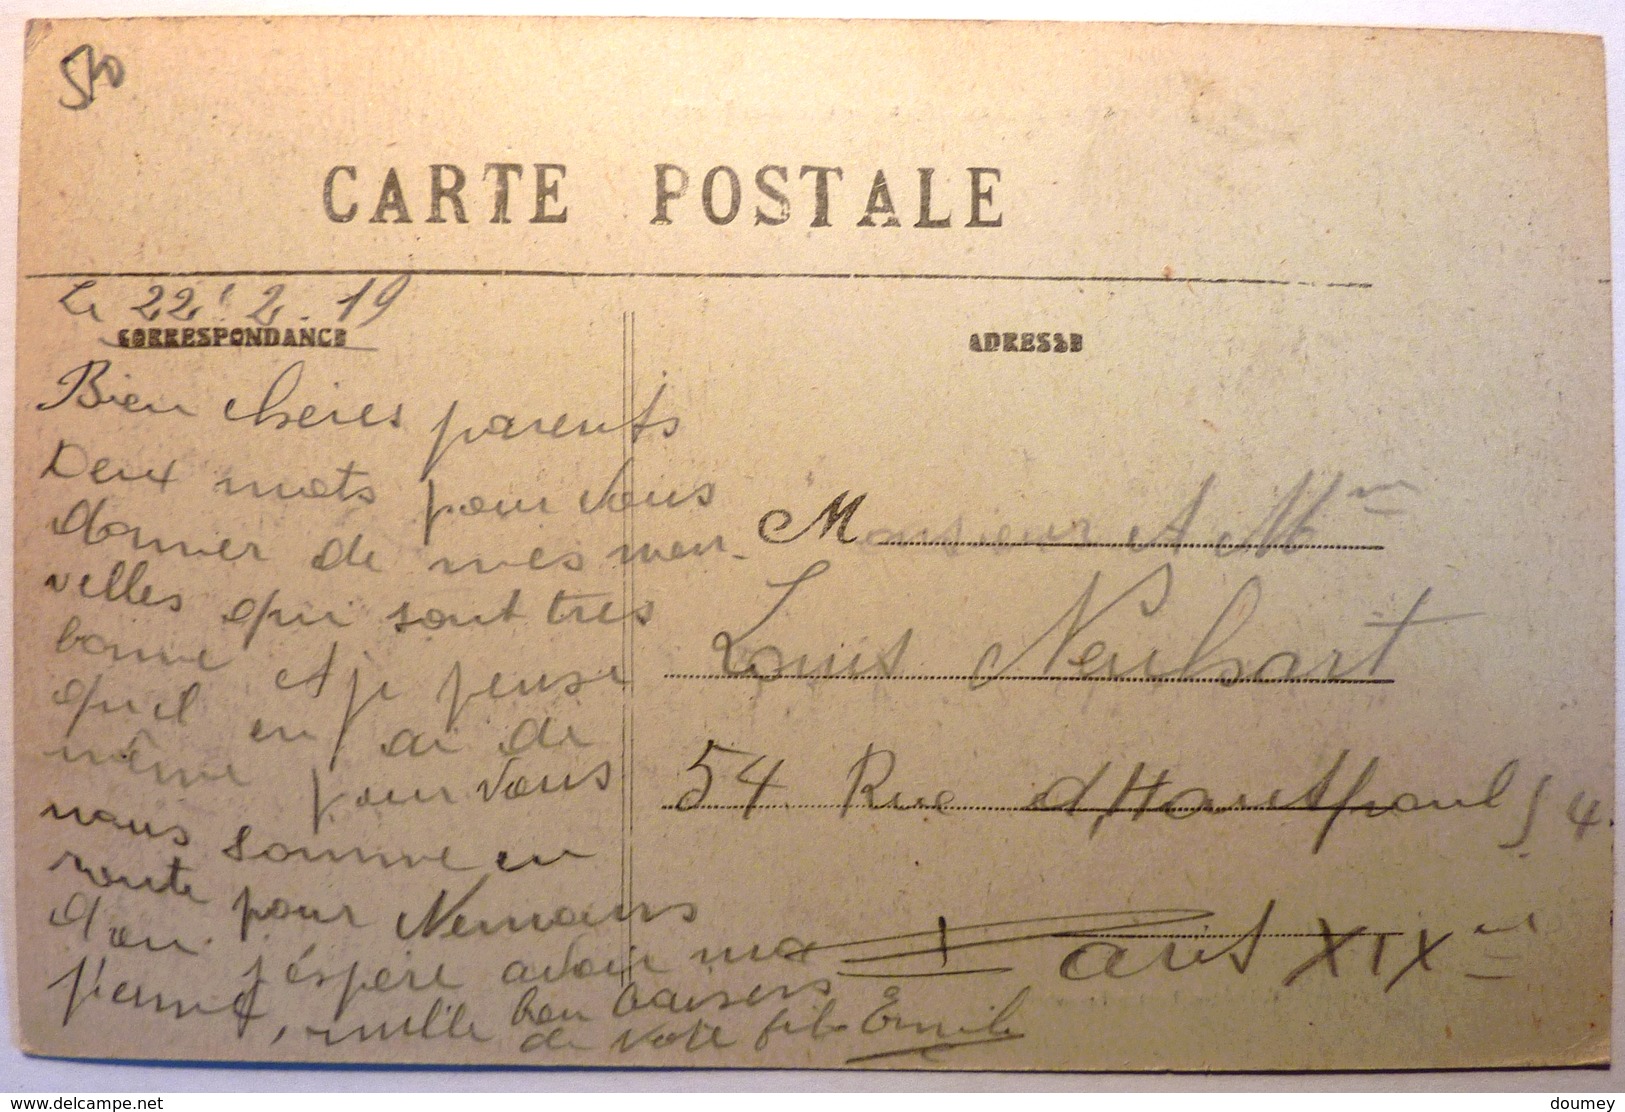 CARTE POSTALE
Le 22.2.19
CORRESPONDANCE
Bien chères parents
Deux mots pour vous
donner de mes nou-
velles qui sont tres
bonne et je pense
qu'il en ai de
même pour vous
nous somme en
route pour Nemours
d'ou j'éspère avoir ma
perme, mille bon baisers
de votre fils Emile
ADRESSE
Monsieur et Mme
Louis Neuhart
54 Rue d'Hautpoul 54.
Paris XIXme
delcampe.net
doumey